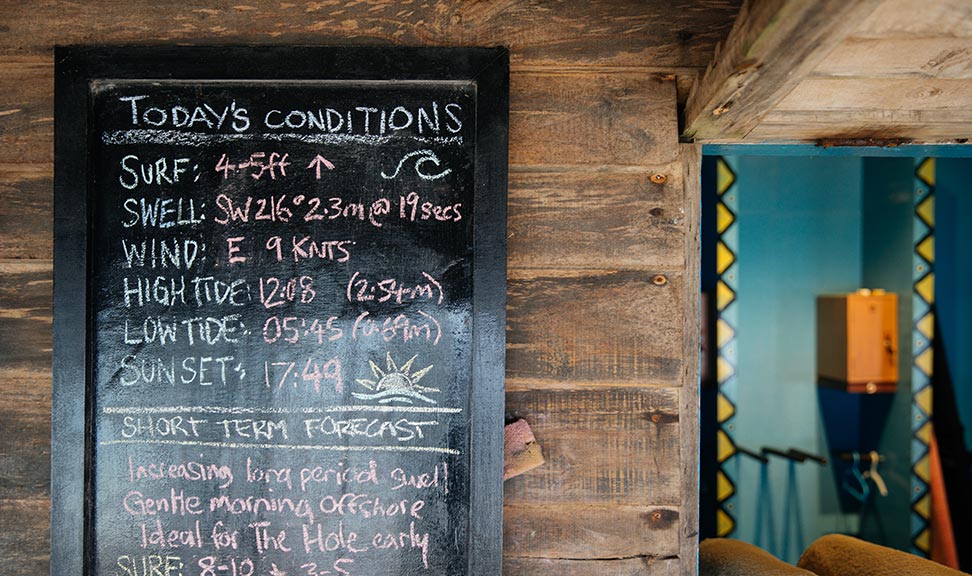 TODAY'S CONDITIONS
SURF: 4-5ft ↑
SWELL: SW 216° 2.3m @ 19secs
WIND: E 9 KNTS
HIGH TIDE: 12:08 (2.54m)
LOW TIDE: 05:45 (0.69m)
SUNSET: 17:49
SHORT TERM FORECAST
Increasing long period swell
Gentle morning offshore
Ideal for The Hole early
SURF: 8-10 + 3-5